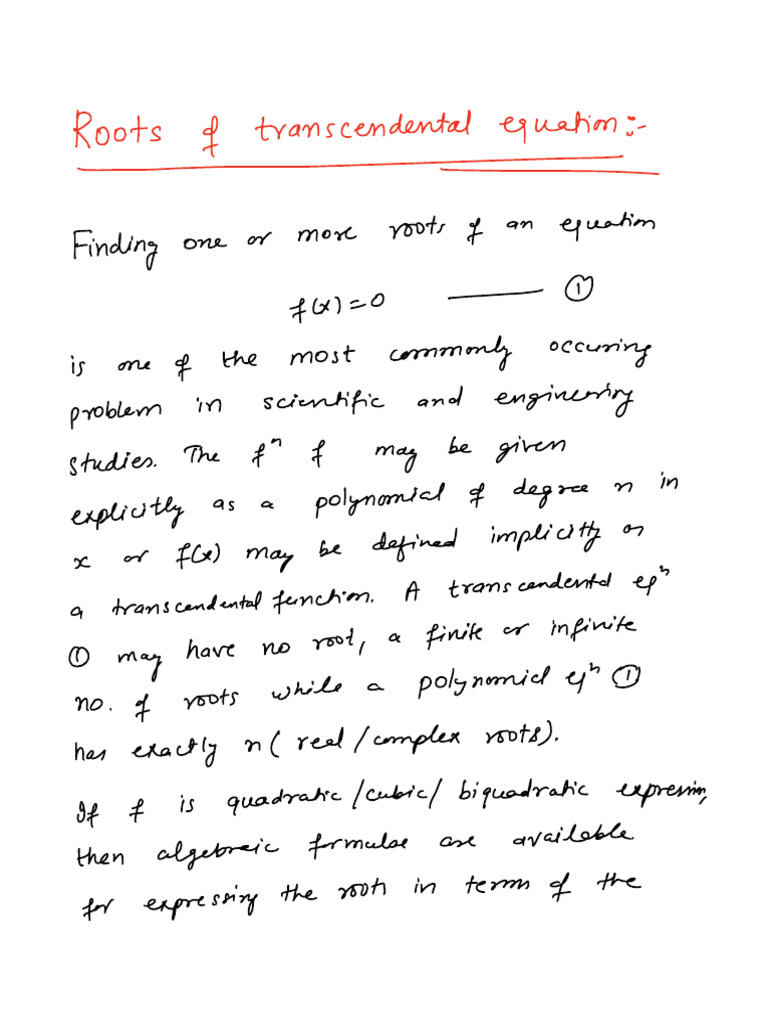 Roots of transcendental equation:-
Finding one or more roots of an equation
f(x)=0 ——— ①
is one of the most commonly occuring
problem in scientific and engineering
studies. The fⁿ f may be given
explicitly as a polynomial of degree n in
x or f(x) may be defined implicitly as
a transcendental function. A transcendental eqⁿ
① may have no root, a finite or infinite
no. of roots while a polynomial eqⁿ ①
has exactly n (real/complex roots).
If f is quadratic/cubic/biquadratic expression,
then algebraic formulae are available
for expressing the roots in terms of the